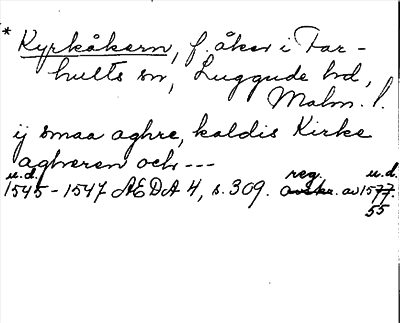 * Kyrkåkern, f. åker i Far-
hults sn, Luggude hd,
Malm. l.
ij smaa aghre, kaldis Kirke
aghreren och ---
u.d. reg. u.d.
1545-1547 ÆDA 4, s. 309. avskr. av 1577.
55